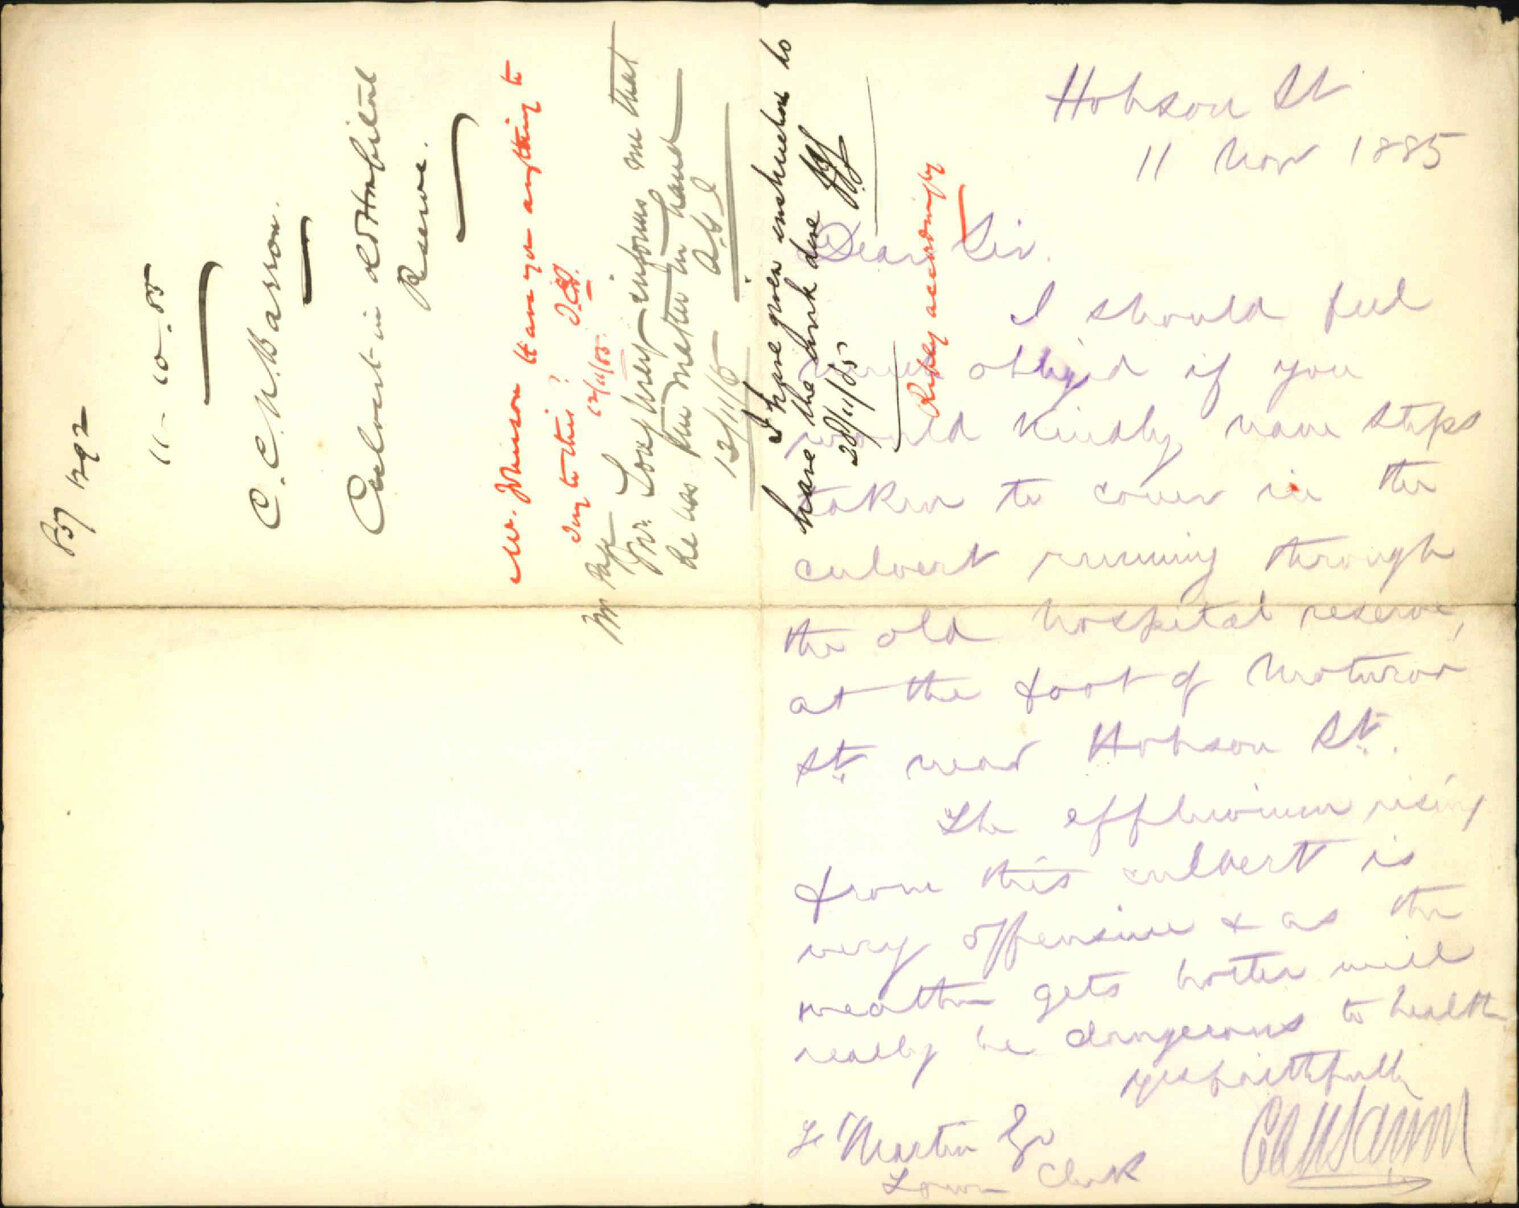 Hobson St
11 Nov 1885
Dear Sir.
I should feel
much obliged if you
would kindly have steps
taken to cover in the
culvert running through
the old hospital reserve,
at the foot of Moturoa
St. near Hobson St.
The effluvium rising
from this culvert is
very offensive & as the
weather gets hotter will
really be dangerous to health
yrs faithfully
F Martin Esq
Town Clerk
1292
11-10-85
C. C. N. Barron.
Culvert in old Hospital
Reserve.
Mr. Johnson Have you anything to
say to this?
12/11/85
Mr Page
Mr. Loughrey informs me that
he has this matter in hand
12/11/5
I have given instructions to
have the work done
28/11/85
Reply accordingly